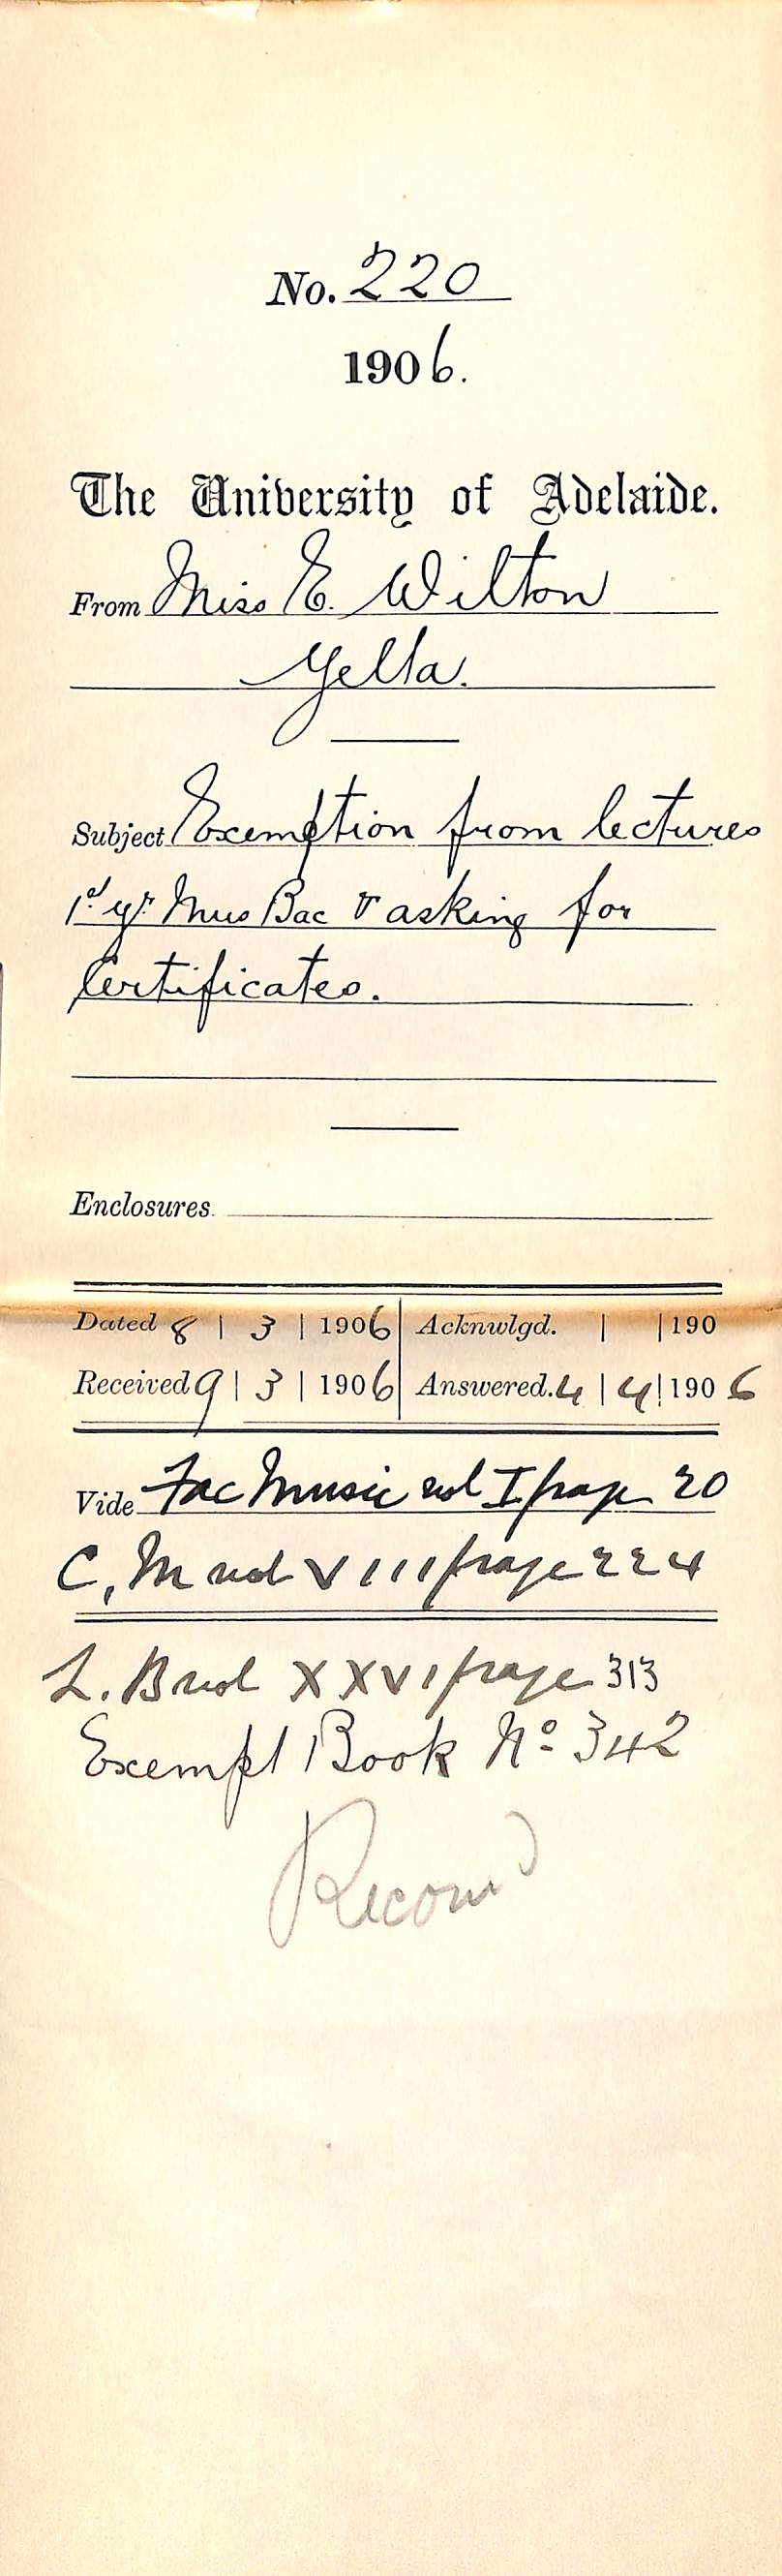 No. 220
1906.
The University of Adelaide.
From Miss E. Wilton
Yella.
Subject Exemption from lectures
1st yr Mus Bac & asking for
Certificates.
Enclosures.
Dated 8 | 3 | 1906 Acknwlgd. | | 190
Received 9 | 3 | 1906 Answered. 4 | 4 | 1906
Vide Fac Music vol I page 20
C, M vol VIII page 224
L. B vol XXVI page 313
Exempt Book No 342